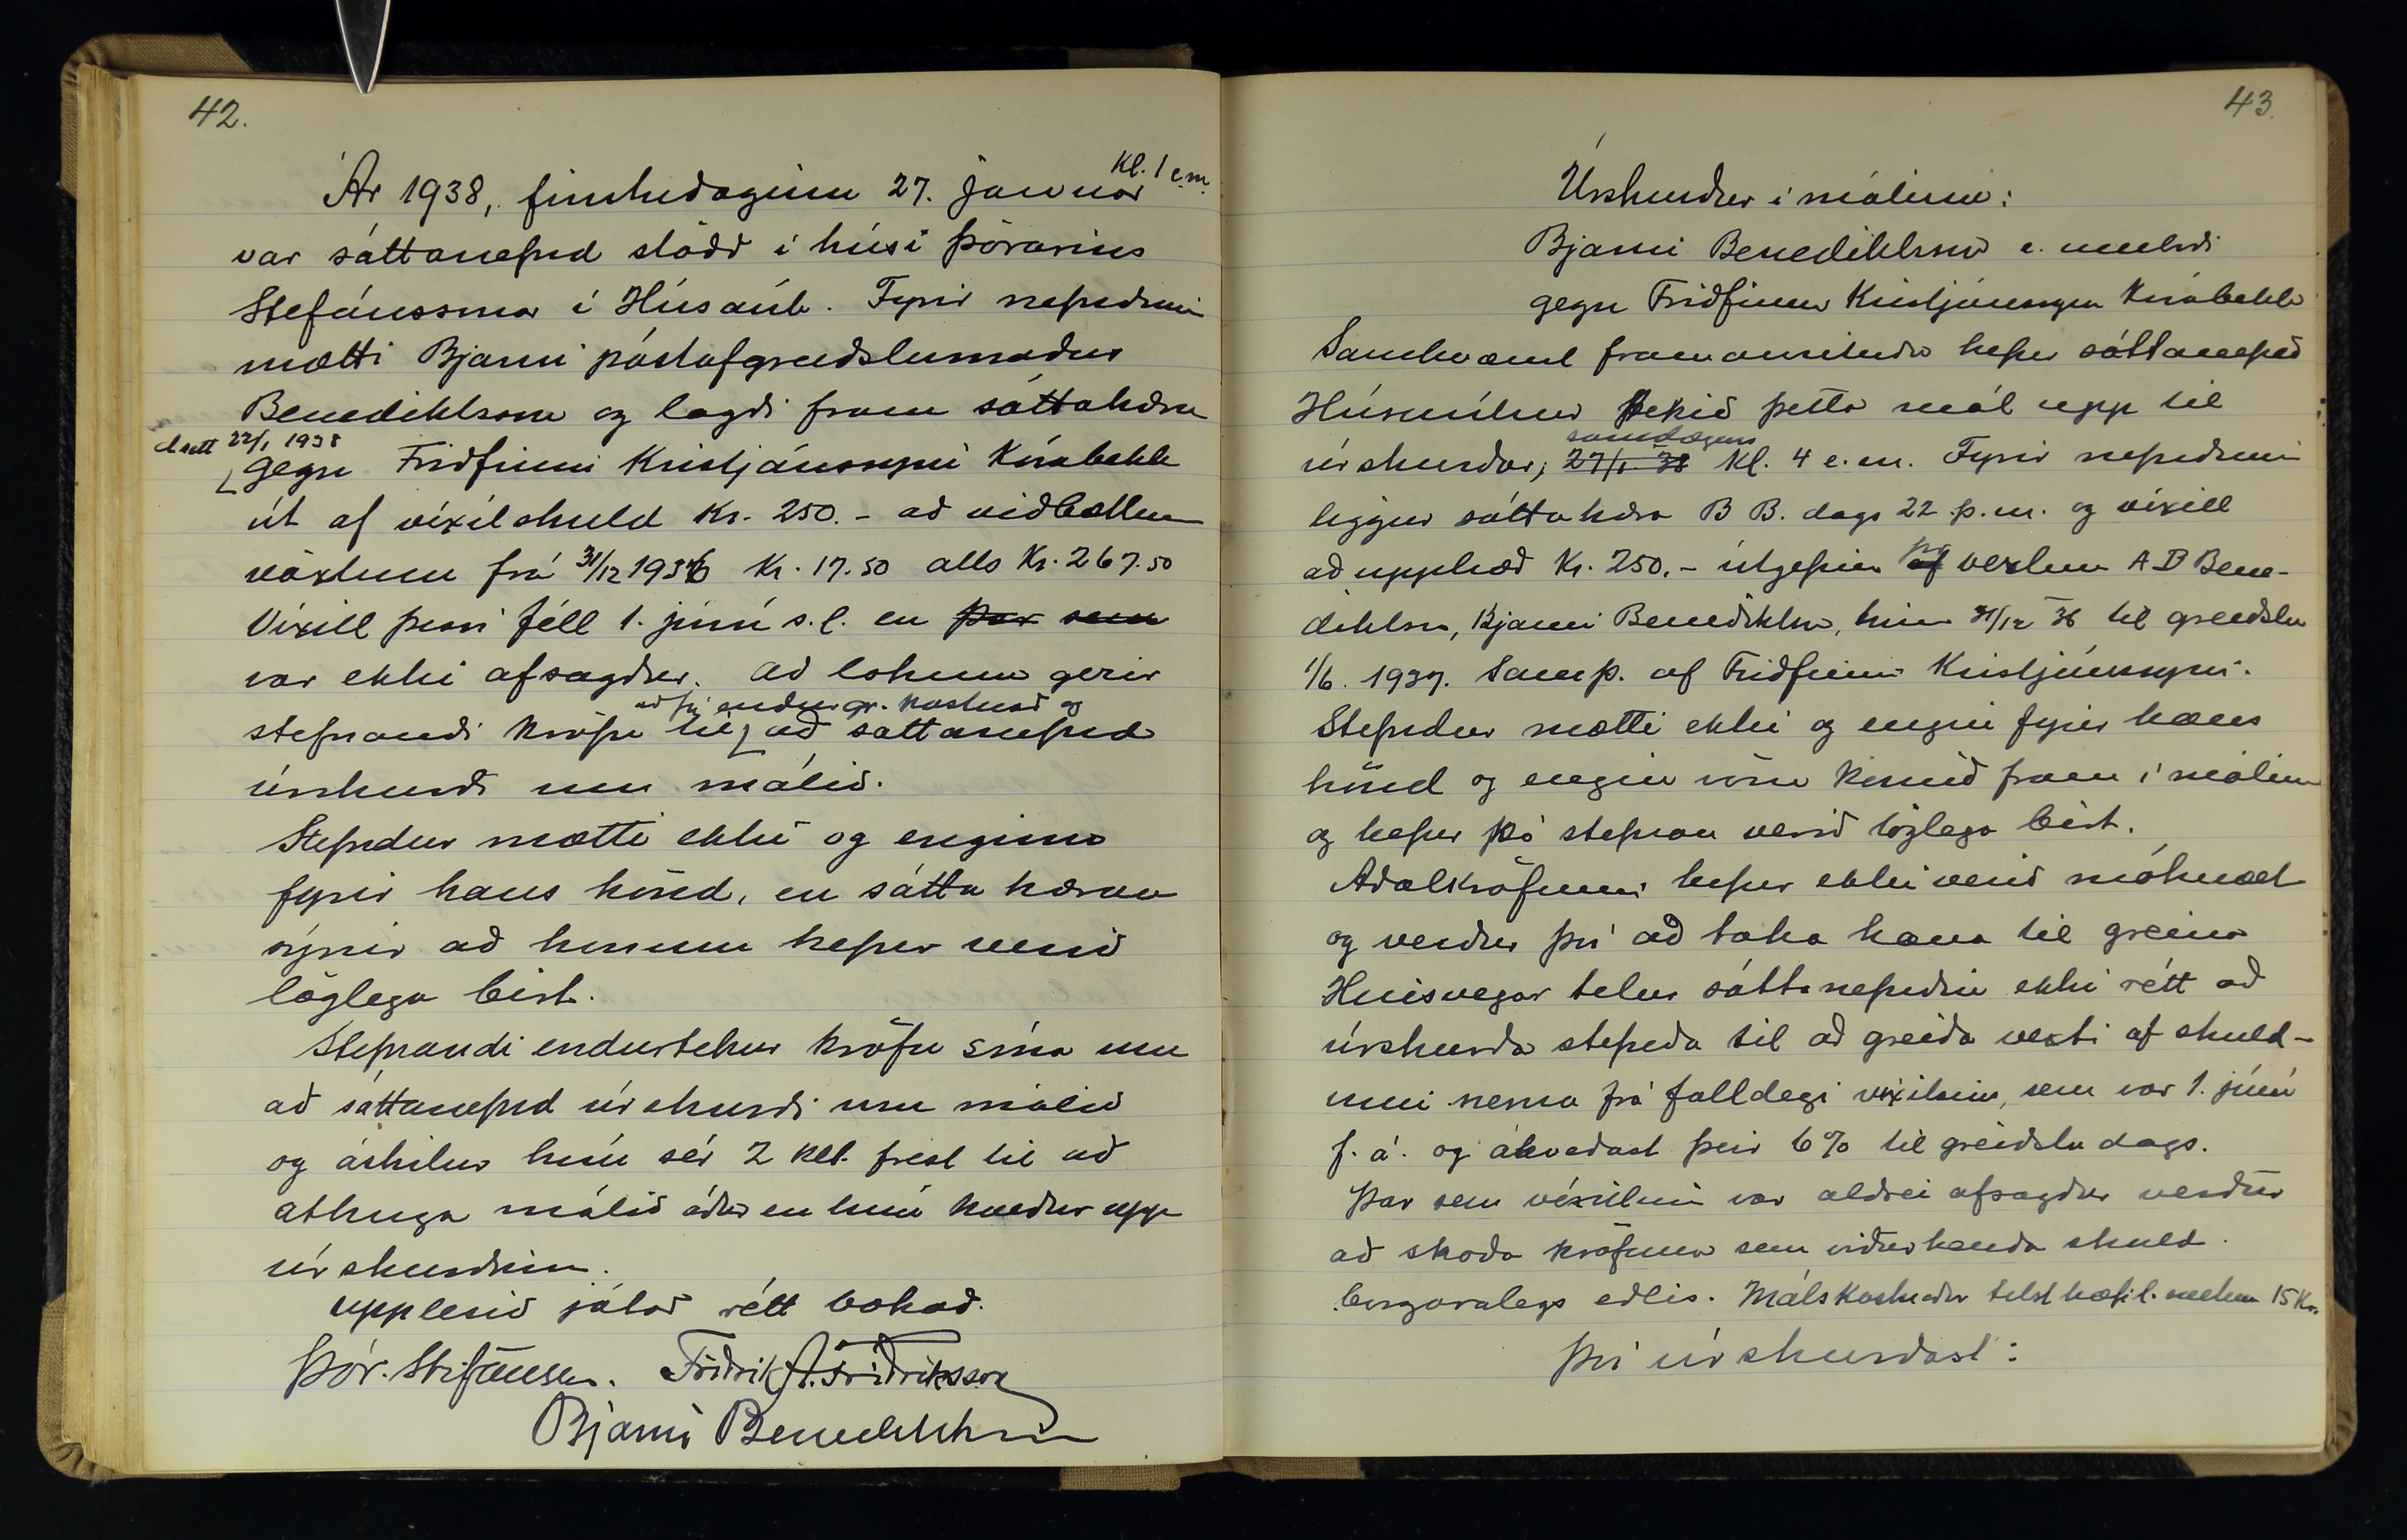 42.
Kl. 1 e.m.
Ár 1938, fimtudaginn 27. janúar
var sáttanefnd stödd í húsi Þórarins
Stefánssonar í Húsavík. Fyrir nefndinni
mætti Bjarni póstafgreiðslumaður
Benediktsson og lagði fram sáttakæru
dsett 22/1 1938
gegn Friðfinni Kristjánssyni Kirabekk
út af víxilskuld Kr. 250.- að viðbættum
vöxtum frá 31/12 1936 Kr. 17.50 alls Kr. 267.50
Víxill þessi féll 1. júní s.l. en þar sem
var ekki afsagður. Að lokum gerir
að fá endurgr. kostnað og
stefnandi kröfu til að sáttanefnd
úrskurði um málið.
Stefndur mætti ekki og enginn
fyrir hans hönd, en sátta kæran
sýnir að honum hefur verið
löglega birt.
Stefnandi endurtekur kröfu sína um
að sáttanefnd úrskurði um málið
og áskilur hún sér 2 kl. frest til að
athuga málið áður en hún kveður upp
úrskurðinn.
Upplesið játað rétt bókað.
Þór. Stefánsson. Friðrik A. Friðriksson
Bjarni Benediktsson
43.
Úrskurður í málinu:
Bjarni Benediktsson e. umboði
gegn Friðfinni Kristjánssyni Kirabekk
Samkvæmt framanrituðu hefur sáttanefnd
Húsavíkur tekið þetta mál upp til
samdægurs
úrskurðar, 27/1 '38 Kl. 4 e.m. Fyrir nefndinni
liggur sáttakæra B B. dags 22 þ.m. og víxill
frá
að upphæð Kr. 250.- útgefinn af verslun A B Bene-
diktsson, Bjarni Benediktsson, hinn 31/12 36 til greiðslu
1/6. 1937. Samþ. af Friðfinni Kristjánssyni.
Stefndur mætti ekki og enginn fyrir hans
hönd og engin vörn komið fram í málinu
og hefur þó stefnan verið löglega birt.
Aðalkröfunni hefur ekki verið mótmælt
og verður því að taka hana til greina
Hinsvegar telur sáttanefndin ekki rétt að
úrskurða stefnda til að greiða vexti af skuld-
inni nema frá falldegi víxilsins, sem var 1. júní
f. á. og ákveðast þeir 6% til greiðsludags.
Þar sem víxillinn var aldrei afsagður verður
að skoða kröfuna sem viðurkenda skuld
borgaralegs eðlis. Málskostnaður telst hæfil. metinn 15 Kr.
Því úrskurðast: